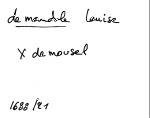 de mandole Louise
X de mousel
1688/21